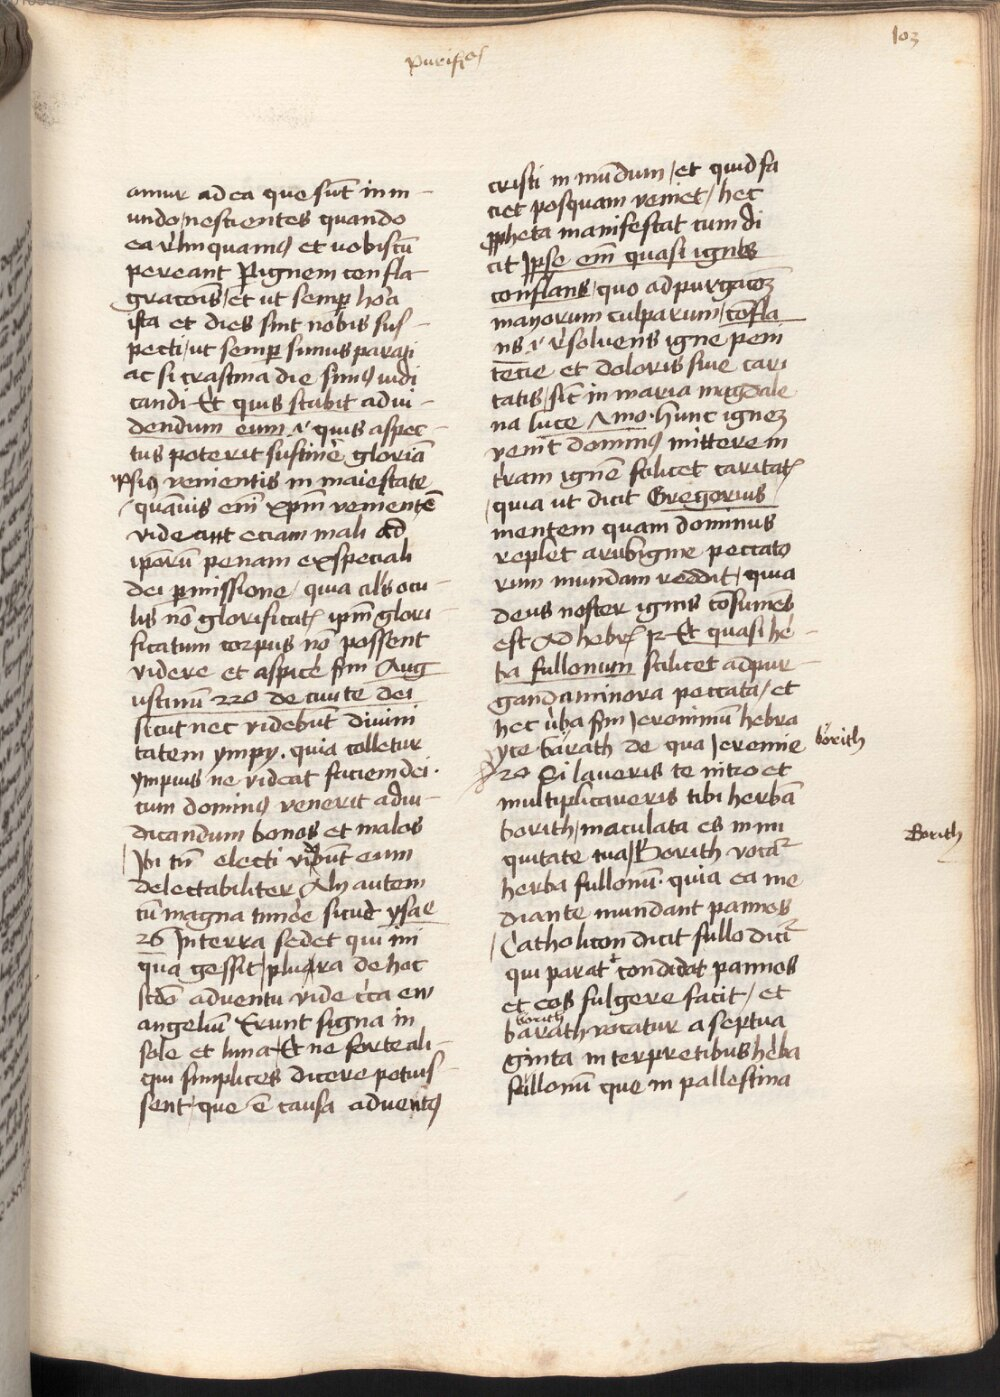 Purificatio
103
amur ad ea que sūt in m
undo / nescientes quando
ea relinquamꝰ et uobiscū
pereant Per ignem confla
gracōis / et ut semꝑ hora
ista et dies sint nobis sus
pecti / ut semꝑ simus parati
ac si crastina die simꝰ iudi
candi Et quis stabit ad vi
dendum eum .i. quis aspec
tus poterit sustinē gloriā
ipsiꝰ venientis in maiestate
quāuis em̄ xp̄m venientē
videant eciam mali ad
ipsorū penam ex speciali
dei ꝑmissione / quia al's ocu
lis nō glorificatis ip̄m glori
ficatum corpus nō possent
videre et aspicē scdm Aug
ustinū 22o de ciuite dei
sicut nec videbūt diuini
tatem ympy . quia tolletur
ympius ne videat faciem dei .
cum dominꝰ venerit ad iu
dicandum bonos et malos
Ibi tn̄ electi videbūt eum
delectabiliter Alij autem
cū magna timore sicud ysae
26 In terra sedet qui ini
qua gessit / plura de hoc
scdō aduentu vide circa ew
angeliū Erunt signa in
sole et luna Et ne forte ali
qui simplices dicere potuis
sent / que ē causa aduentꝰ
cristi in mūdum / et quid fa
ciet posquam veniet / hec
ꝓpheta manifestat cum di
cit Ipse em̄ quasi ignis
conflans / quo ad purgacōꝫ
maiorum culparum / cōfla
ns .i. resoluens igne peni
tecie et doloris siue cari
tatis / sic̄ in maria magdale
na luce 7mo . Hunc igneꝫ
venit dominꝰ mittere in
terram ignē scilicet caritatis
quia ut dicit Gregorius
mentem quam dominus
replet a rubigine peccato
rum mundam reddit / quia
deus noster ignis cōsumēs
est Ad hebre. 12 Et quasi he
ba fullonum scilicet ad pur
ganda minora peccata / et
hec herba scdm Jeronimū hebra
yce barath de qua Jeremie
borith
2o Si laueris te nitro et
multiplicaueris tibi herbā
borith / maculata es in ini
Borith
quitate tua / Borith vocat
herba fullonū . quia ea me
diante mundant pannos
Catholicon dicit fullo dicit
qui parat condidat pannos
et eos fulgere facit / et
borith
barath vocatur a septua
ginta interpretibus herba
fullonū que in pallestina